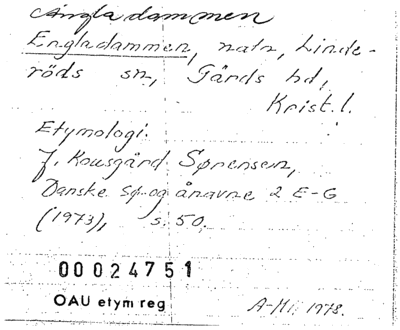 Ängladammen
Engladammen, natn, Linde-
röds sn, Gärds hd,
Krist. l.
Etymologi.
J. Kousgård Sørensen,
Danske sø- og ånavne 2 E-G
(1973), s. 50.
00024751
OAU etym reg
A-Mi. 1978.